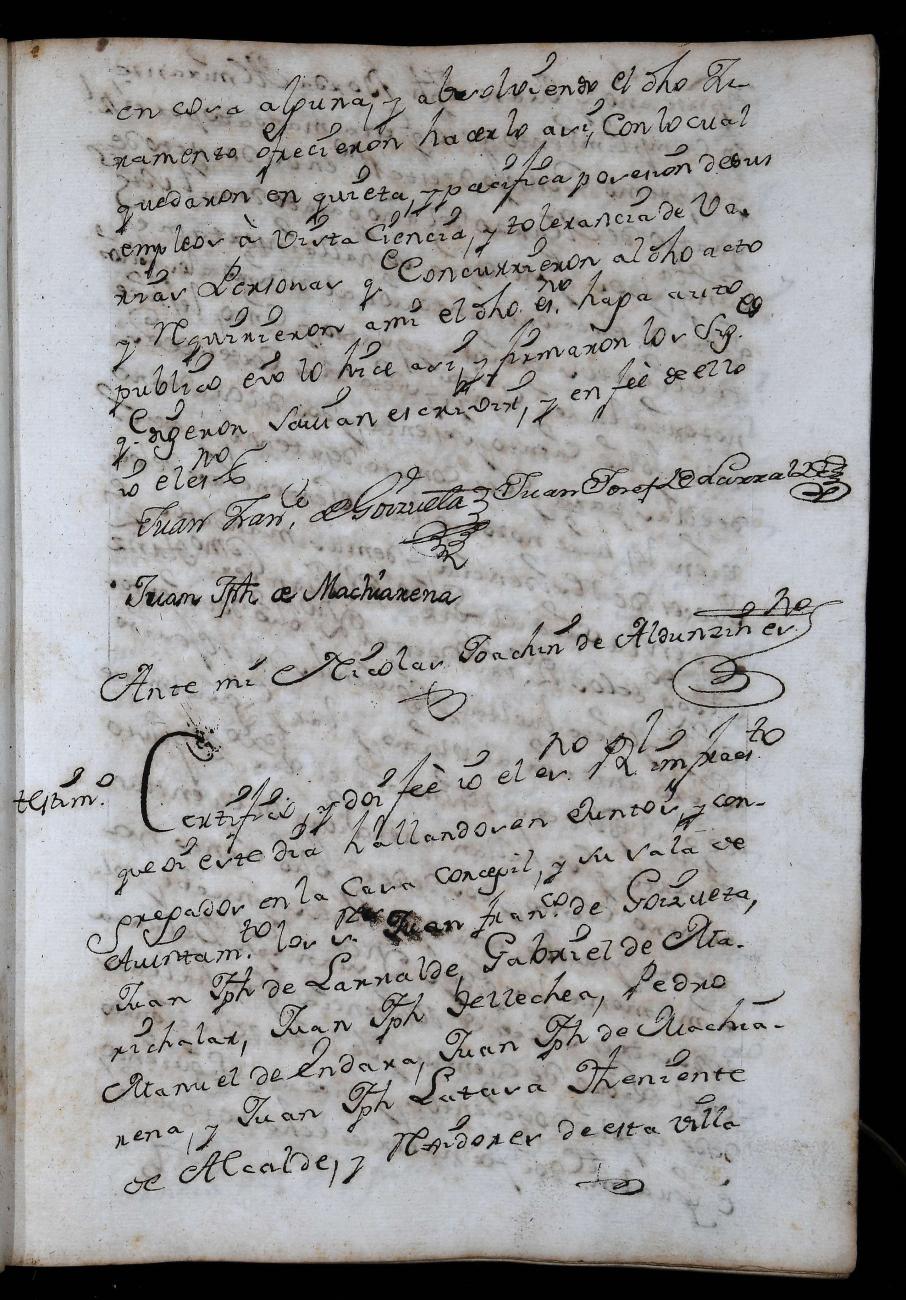 en cosa alguna, y absolviendo el dho Ju-
ramento ofrecieron hacerlo asi, Con lo cual
quedaron en quieta, y pacifica posesion de sus
empleos à vista Ciencia, y tolerancia de Va-
rias Personas qe Concurrieron al dho acto
y Requirieron a mi el dho esno haga auto
publico e io lo hice asi, y firmaron los Sigtes
qe digeron savian escrivir, y en feè de ello
io el esno
Juan Franco de Goizueta Juan Josef de Larralde
Juan Jph de Machiarena
Ante mi Nicolas Joachin de Aldunzin esno
testimo
Certifico, y doi feè io el esno Rl infraesto
que oi este dia hallandose en Juntos, y con-
gregados en la Casa Concegil, y su sala de
Aiuntamto los Sres Juan Franco de Goizueta,
Juan Jph de Larralde, Gabriel de Ma-
richalar, Juan Jph Tellechea, Pedro
Manuel de Endara, Juan Jph de Machia-
rena, y Juan Jph Latasa Theniente
de Alcalde, y Regidores de esta villa